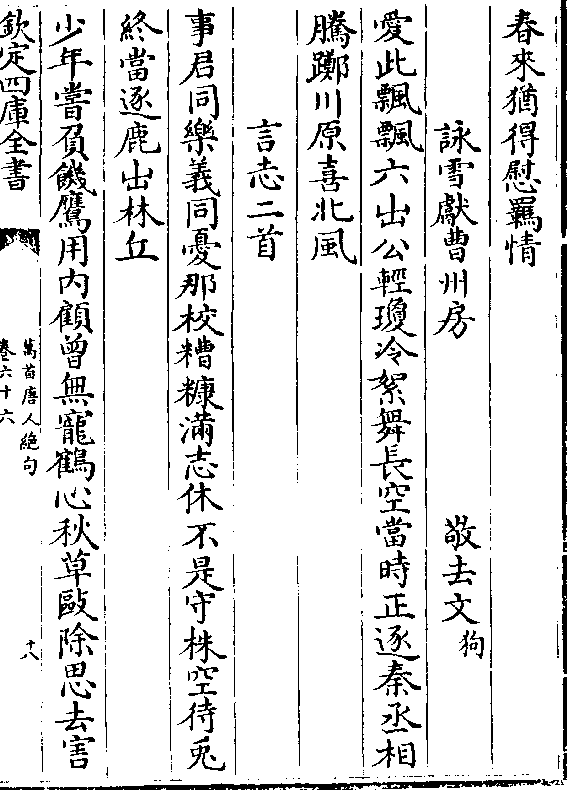 春來猶得慰羈情
詠雪獻曹州房 敬去文狗
愛此飄飄六出公輕瓊冷絮舞長空當時正逐秦丞相
騰躑川原喜北風
言志二首
事君同樂義同憂那校糟糠滿志休不是守株空待兎
終當逐鹿出林丘
少年嘗負饑鷹用内顧曾無寵鶴心秋草敺除思去害
欽定四庫全書
萬首唐人絶句
卷六十六
十八